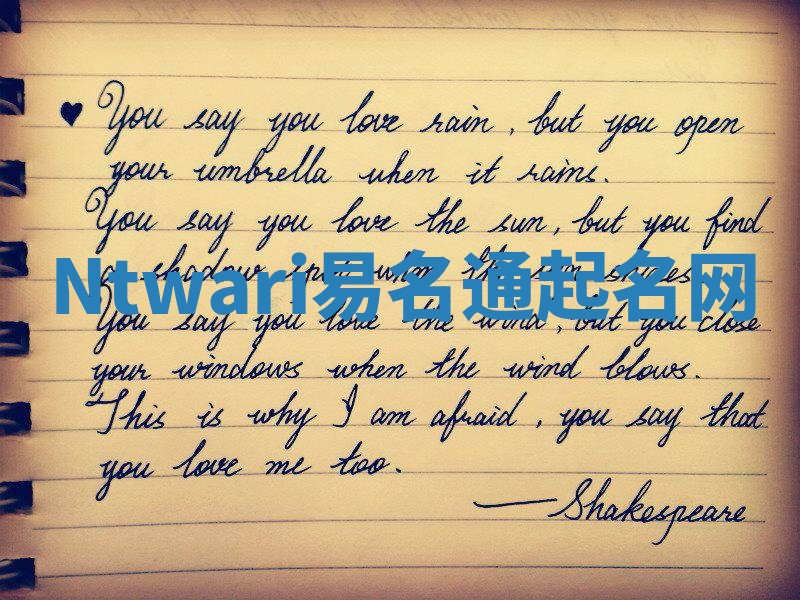 ♥ You say you love rain, but you open
your umbrella when it rains.
You say you love the sun, but you find
a shadow spot when the sun shines
Ntwari易名通起名网
You say you love the wind, but you close
your windows when the wind blows.
This is why I am afraid, you say that
you love me too.
— Shakespeare